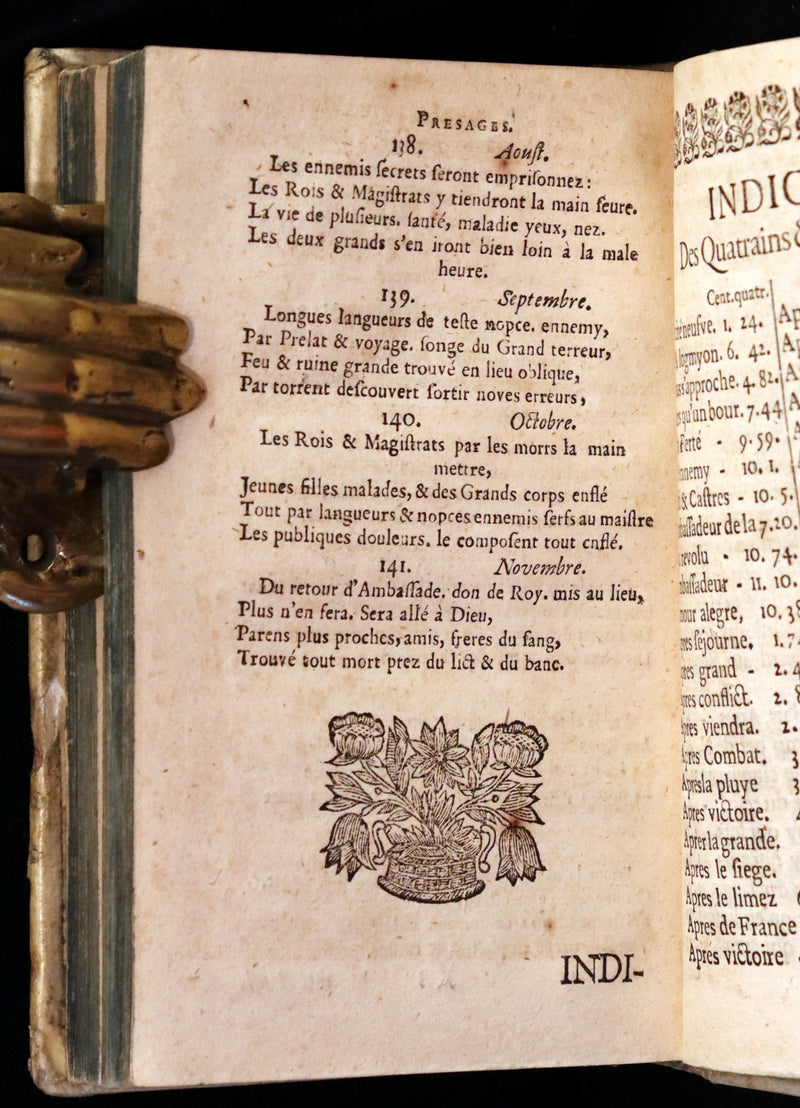 PRESAGES.
138. Aouſt.
Les ennemis ſecrets ſeront empriſonnez:
Les Rois & Magiſtrats y tiendront la main ſeure.
La vie de pluſieurs. ſanté, maladie yeux, nez.
Les deux grands s'en iront bien loin à la male
heure.
139. Septembre.
Longues langueurs de teſte nopce. ennemy,
Par Prelat & voyage. ſonge du Grand terreur,
Feu & ruine grande trouvé en lieu oblique,
Par torrent deſcouvert ſortir noves erreurs,
140. Octobre.
Les Rois & Magiſtrats par les morrs la main
mettre,
Jeunes filles malades, & des Grands corps enflé
Tout par langueurs & nopces ennemis ſerfs au maiſtre
Les publiques douleurs. le compoſent tout enflé.
141. Novembre.
Du retour d'Ambaſſade. don de Roy. mis au lieu,
Plus n'en fera. Sera allé à Dieu,
Parens plus proches, amis, freres du ſang,
Trouvé tout mort prez du lict & du banc.
INDI-
INDIC
Des Quatrains &
Cent. quatr.
neufve. 1. 24.
ogmyon. 6. 42.
s'approche. 4. 82.
qu'un bour. 7. 44
Ferté - 9. 59.
nnemy - 10. 1.
& Caſtres - 10. 5.
aſſadeur de la 7. 20.
evolu - 10. 74.
baſſadeur - 11. 10.
our alegre, 10. 38
res ſejourne. 1. 7
res grand - 2. 4
res conflict. 2. 8
pres viendra. 2.
Apres Combat. 3
Apres la pluye 3
Apres victoire. 4
Aprer la grande.
Apres le ſiege.
Apres le limez 6
Apres de France
Aprés victoire